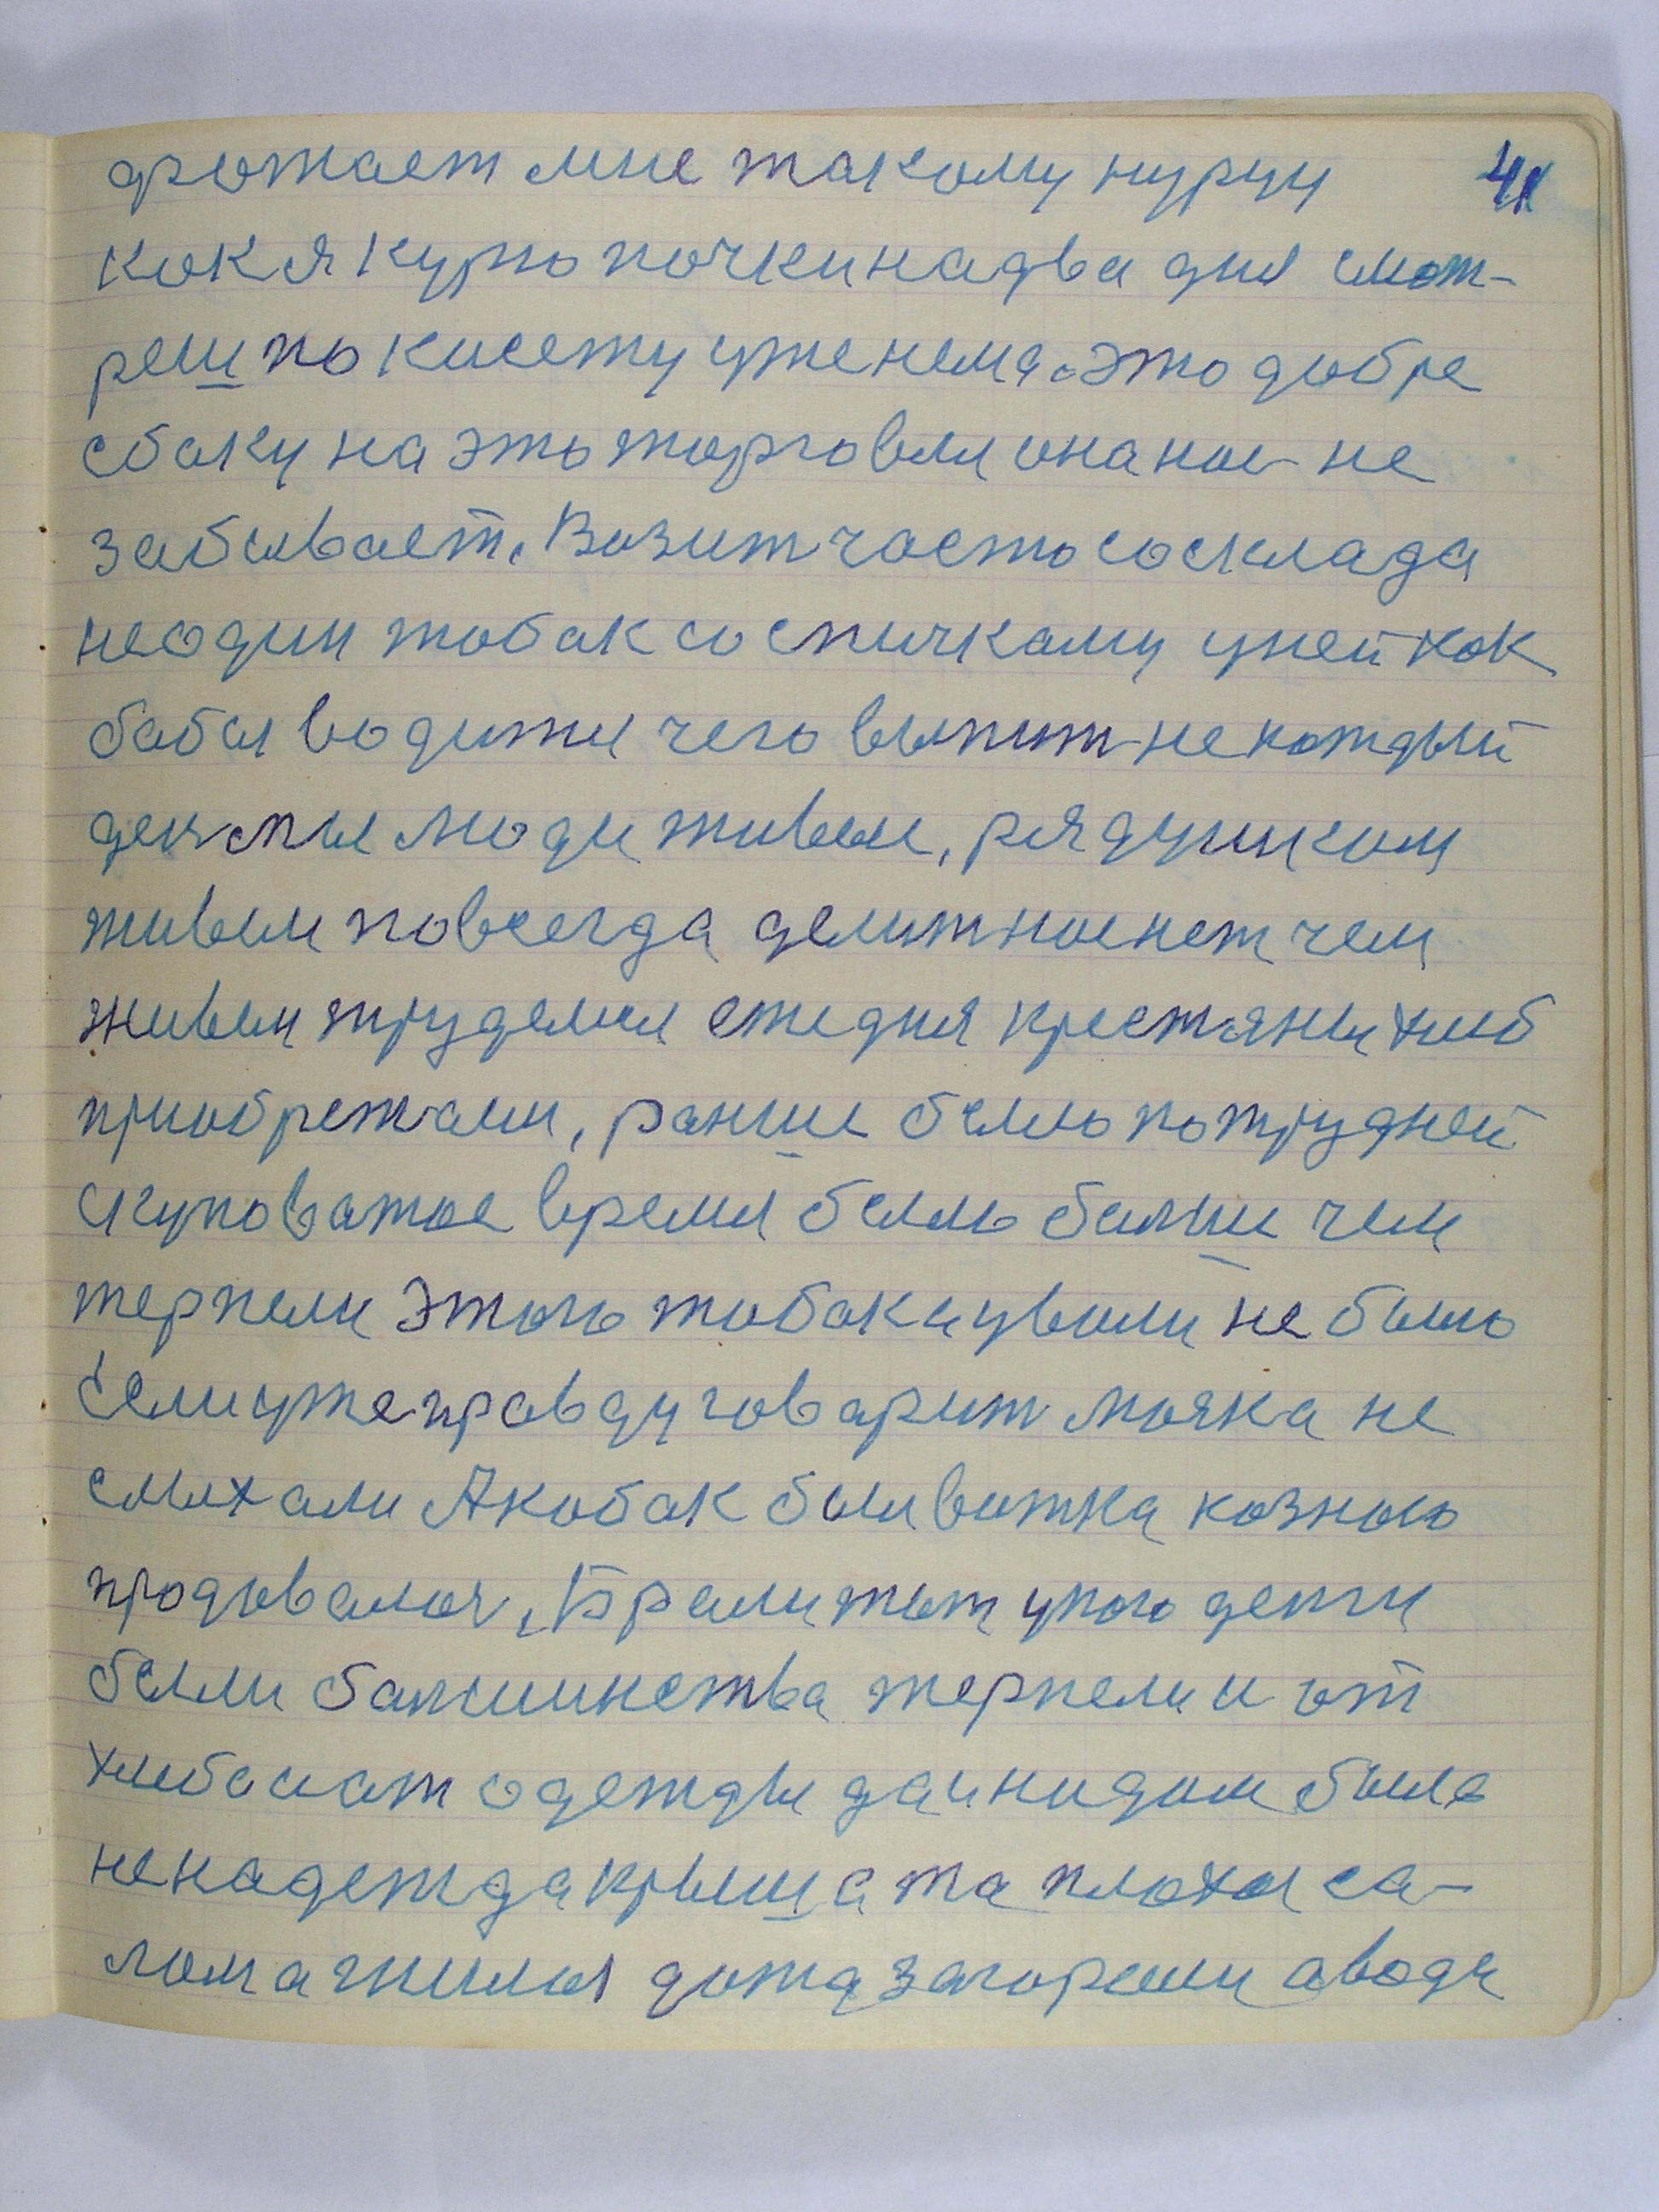 дютает мне такому курцу 41
как я курю почки на два дня смот-
реш по кисету уже нема. Это добре
сбоку на эта торговля она нас не
забывает. Возит часто со склада
не один тобак со спичкаму у ней как
бабы водити чего выпит не каждый
ден мы люди живём, рядушком
живём повсегда делит нас нет чем
живём трудемся ежедня крестяны хлеб
приобретали, ранше было потрудней
скуповатое время было болше чем
терпели этого тобака уволи не было
Если уже правду говарит мояка не
смихали А кобак был вотка козного
продовался, Брали тот у кого денги
были болшинства терпели и от
хлеба и от одежды да и на дом было
не надежда крыша та плохая са-
лома гнилая дожд загорели а вода